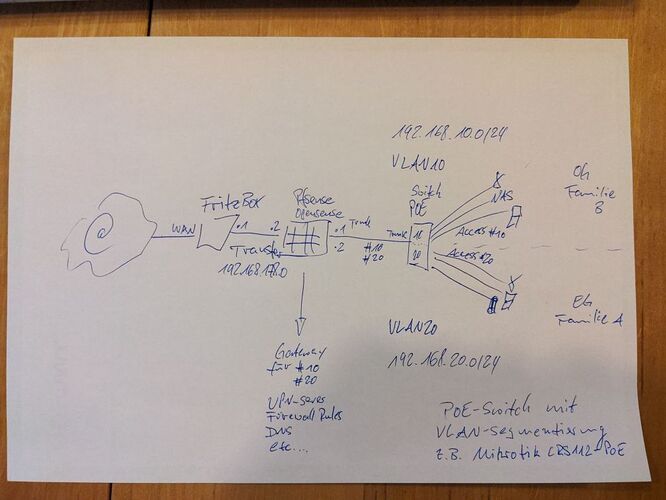 @
WAN
FritzBox
.1
.2
Transfer
192.168.178.0
Pfsense
Opensense
.1
.2
Trunk
#10
#20
Gateway
für #10
#20
VPN-Server
Firewall Rules
DNS
etc....
192.168.10.0/24
VLAN10
Switch
POE
Trunk
10
20
NAS
Access #10
OG
Familie
B
Access #20
EG
Familie A
VLAN20
192.168.20.0/24
POE-Switch mit
VLAN-Segmentierung
z.B. Mikrotik CRS112-PoE